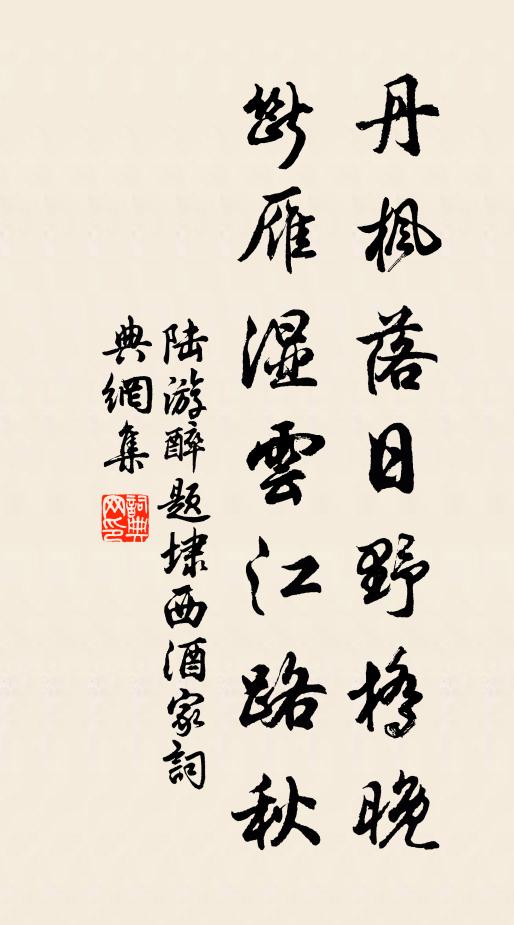 丹楓落日野橋晚
斷雁濕雲江路秋
陸游醉題埭西酒家詞
典網集
詞典
網印